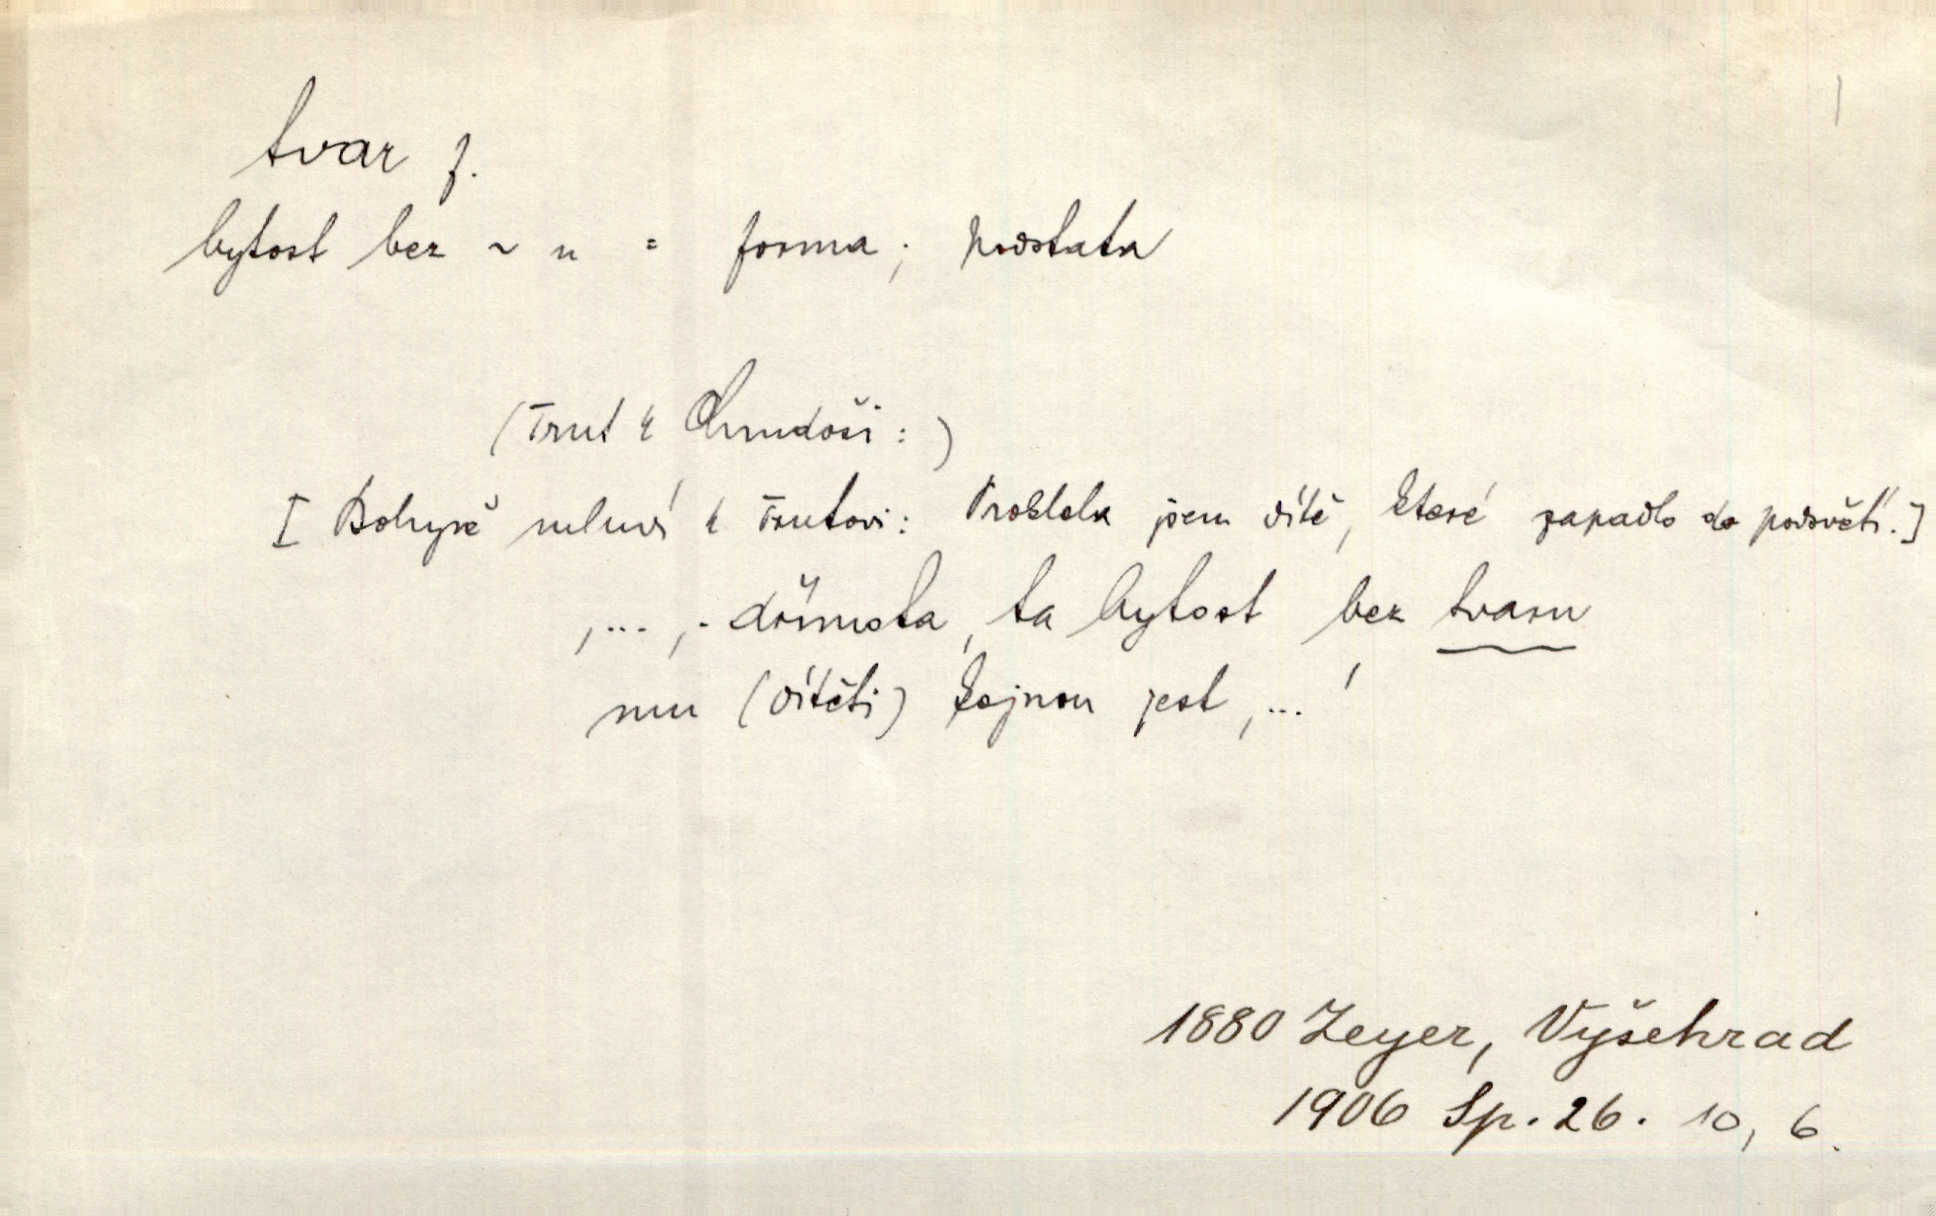 tvar f.
bytost bez ~ u = forma; podstata
(Trut k Chrudoši:)
[Bohyně mluví k Trutovi: Proklela jsem dítě, které zapadlo do podsvětí.]
,... , dřímota, ta bytost bez tvaru
mu (dítěti) kojnou jest,...'
1880 Zeyer, Vyšehrad
1906 Sp. 26. 10, 6.